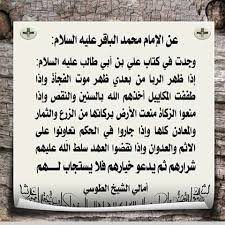 عن الإمام محمد الباقر عليه السلام:
وجدت في كتاب علي بن أبي طالب عليه السلام:
إذا ظهر الربا من بعدي ظهر موت الفجأة وإذا
طففت المكاييل أخذهم الله بالسنين والنقص وإذا
منعوا الزكاة منعت الأرض بركاتها من الزرع والثمار
والمعادن كلها وإذا جاروا في الحكم تعاونوا على
الإثم والعدوان وإذا نقضوا العهد سلط الله عليهم
شرارهم ثم يدعو خيارهم فلا يستجاب لهم
أمالي الشيخ الطوسي